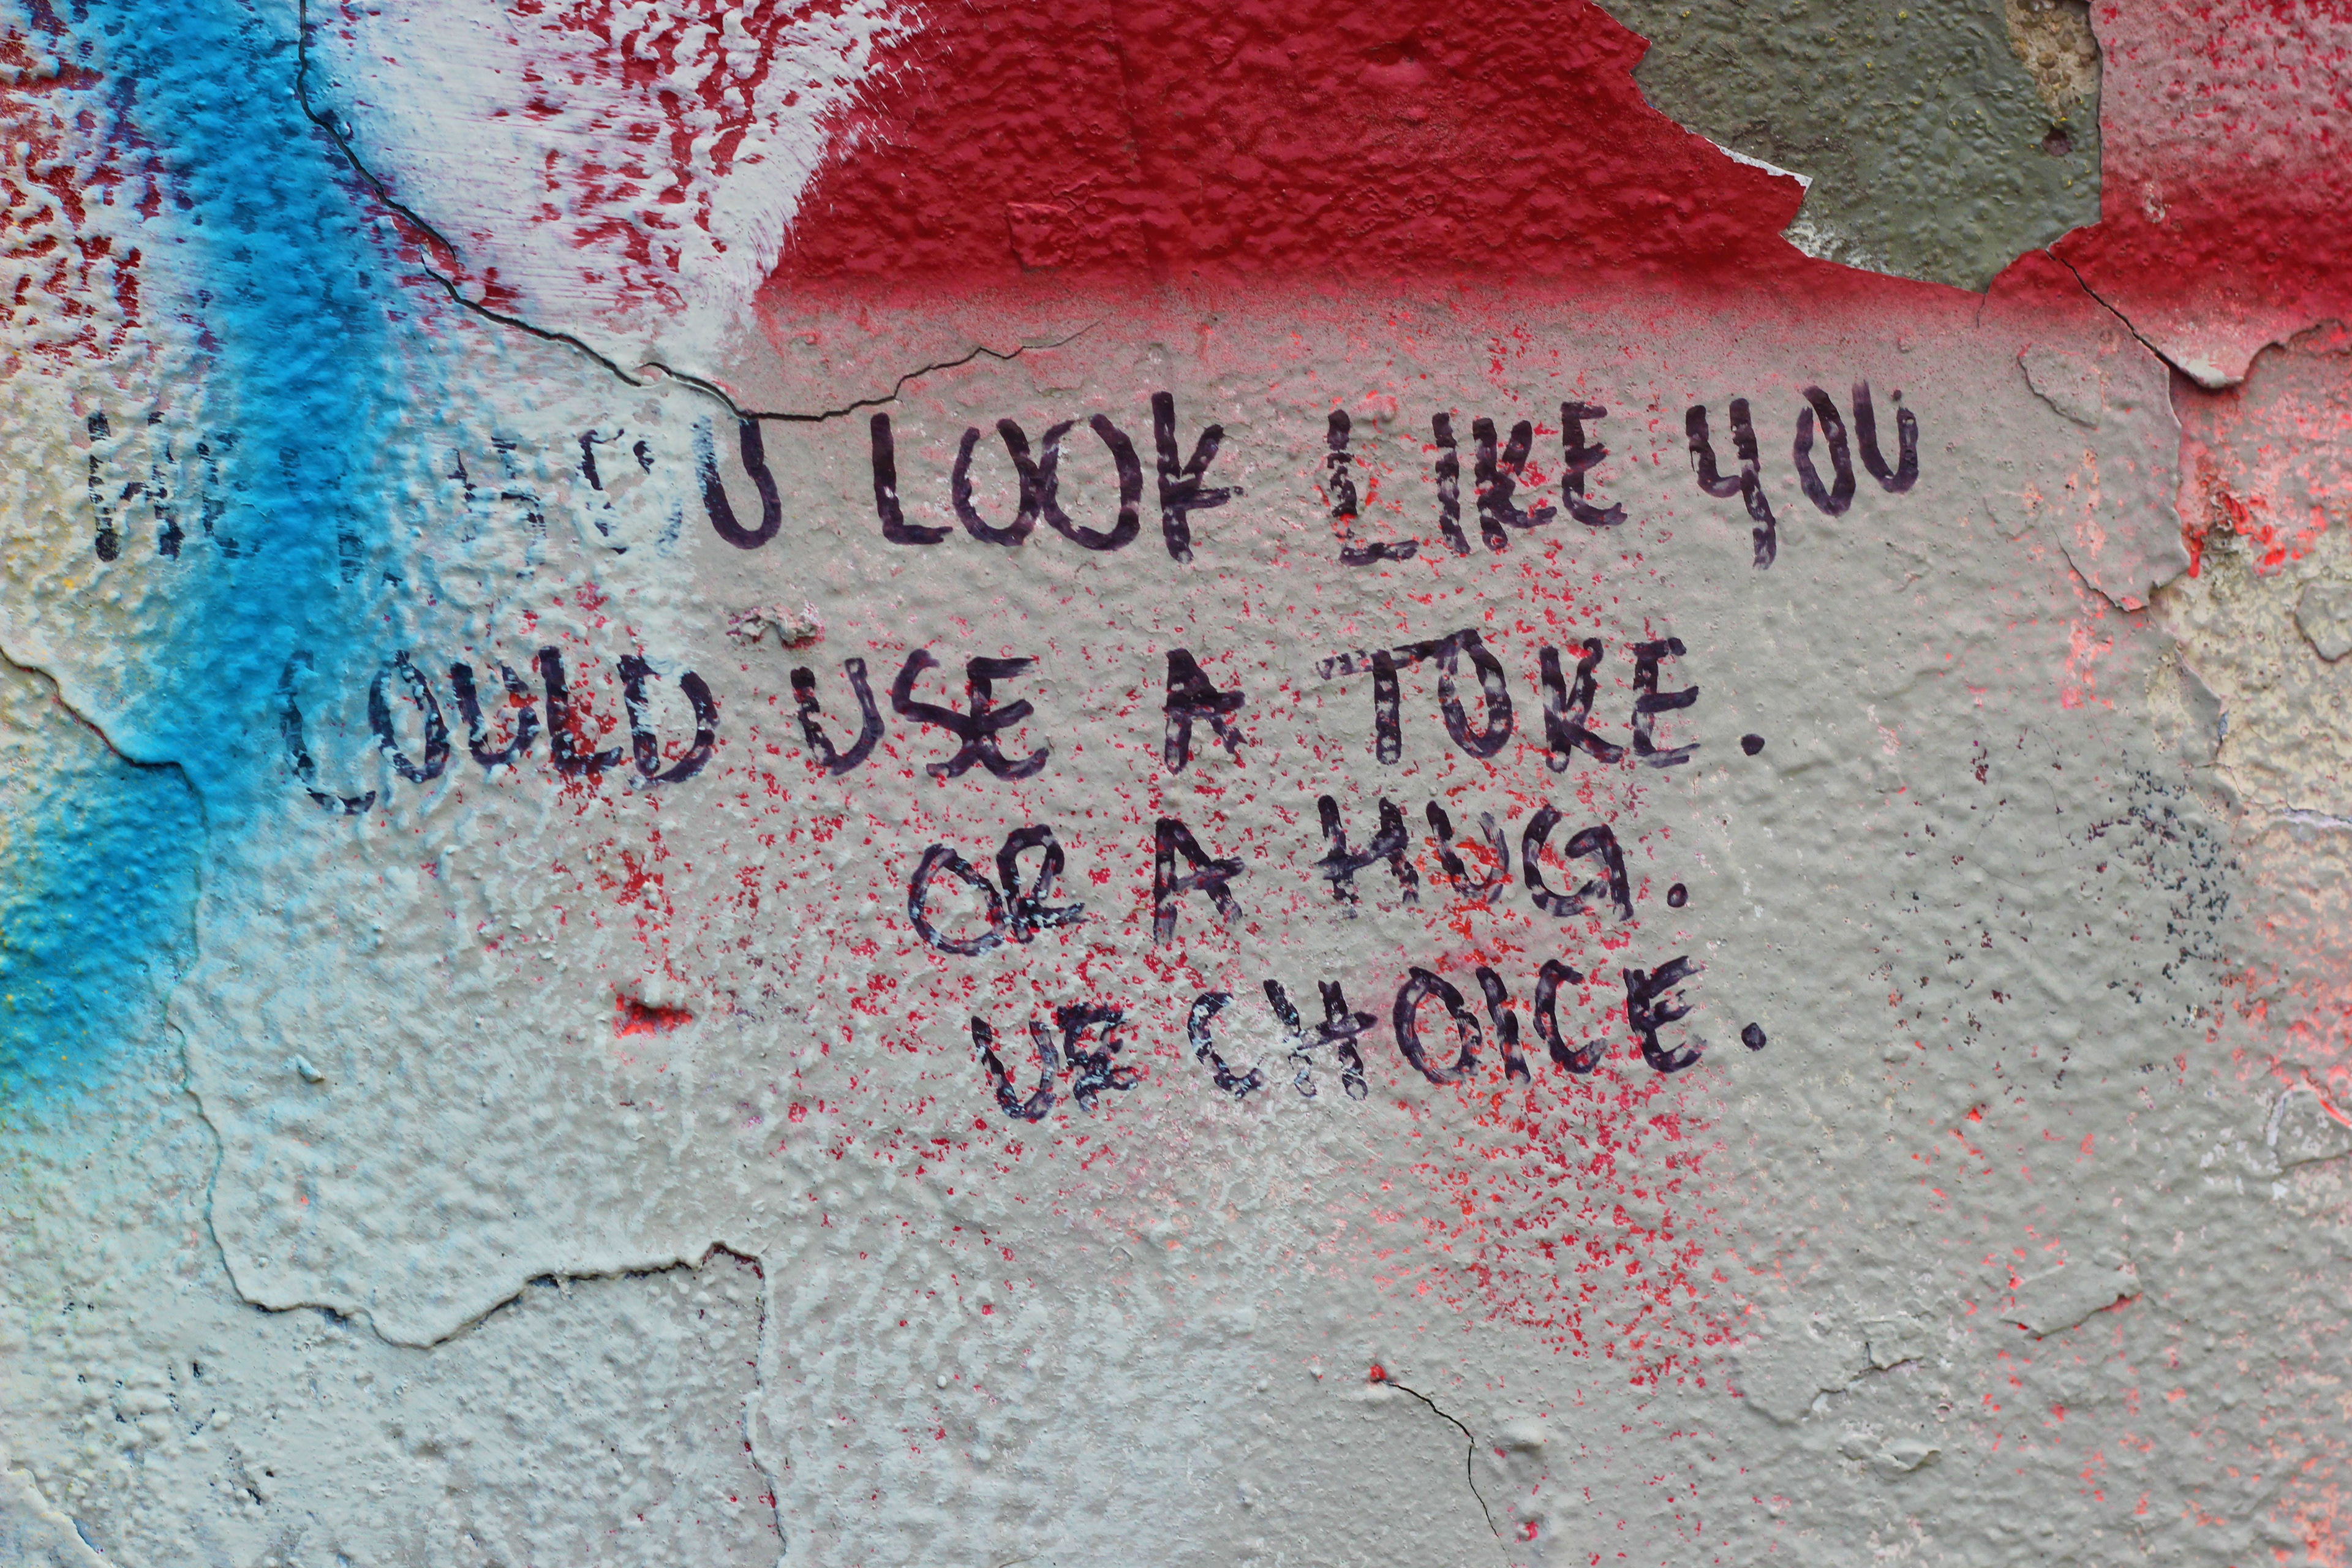 YOU LOOK LIKE YOU
COULD USE A TOKE.
OR A HUG.
UR CHOICE.